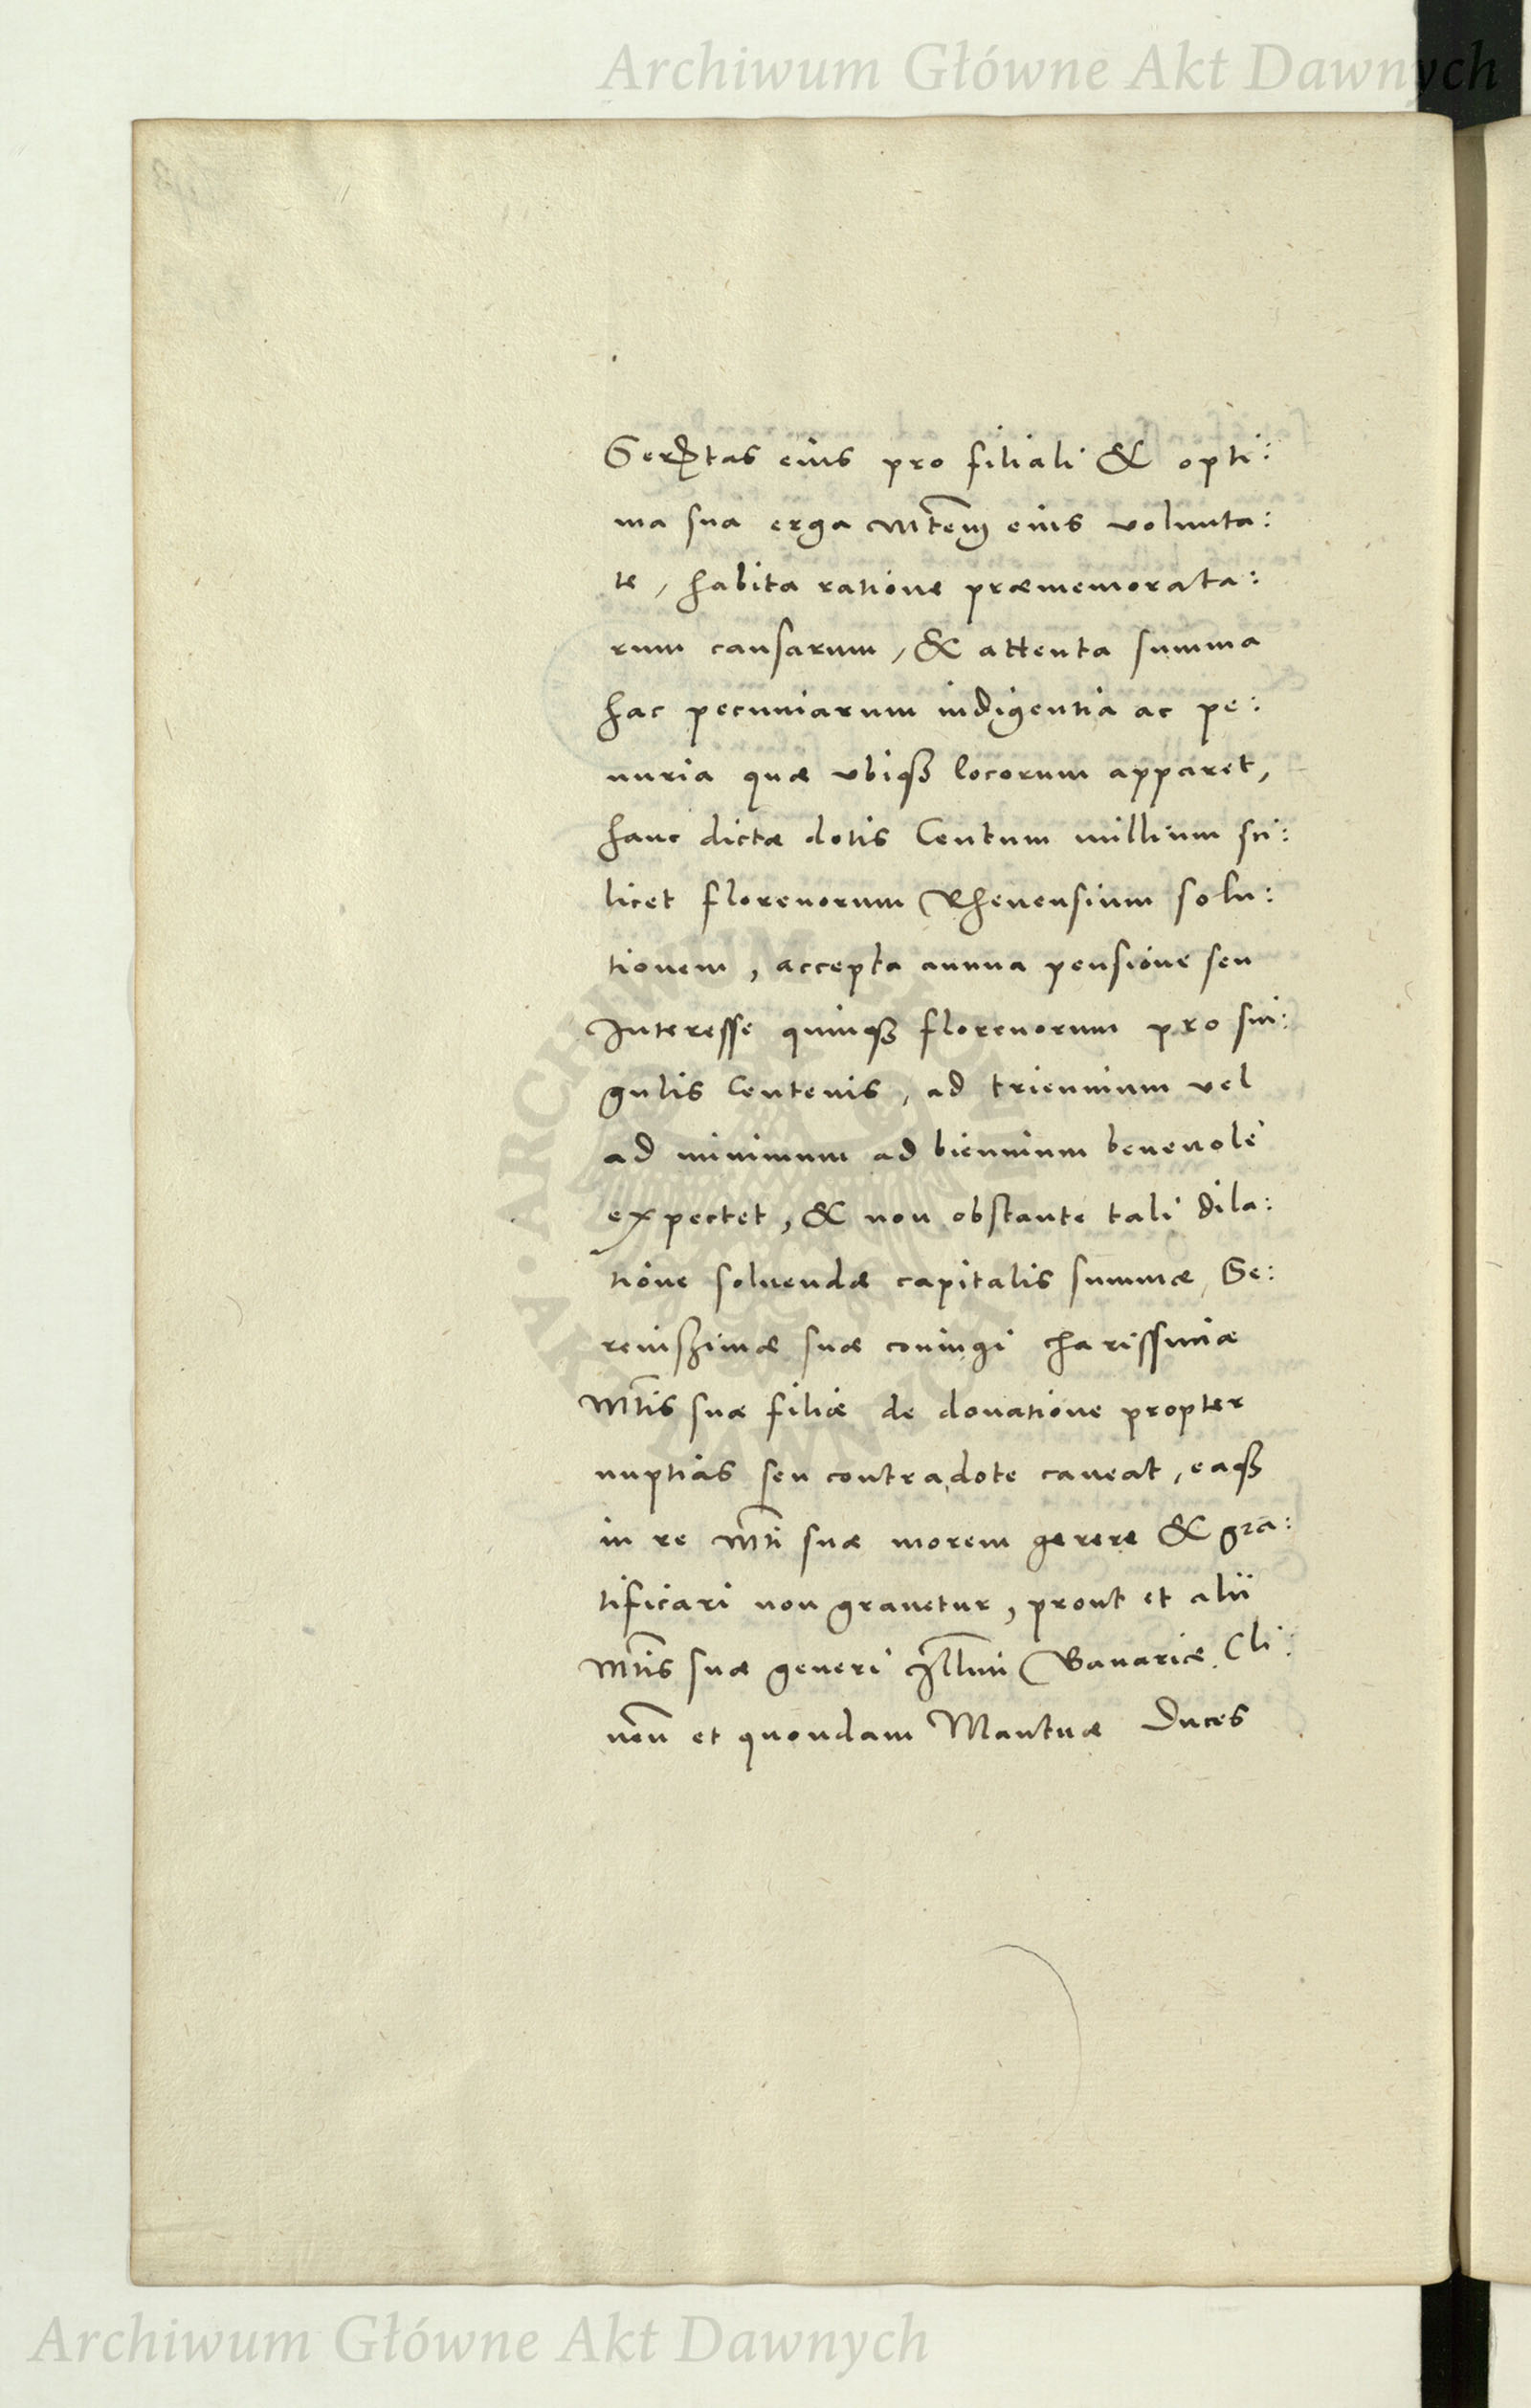 Archiwum Główne Akt Dawnych
Sertas eius pro filiali & opti:
ma sua erga Mtem eius volunta:
te, habita ratione præmemorata:
rum causarum, & attenta summa
hac pecuniarum indigentia ac pe:
nuria quæ ubiqȝ locorum apparet,
hanc dictæ dotis Centum millium sci:
licet florenorum Rhenensium solu:
tionem, accepta annua pensione seu
Interesse quinqȝ florenorum pro sin:
gulis Centenis, ad triennium vel
ad minimum ad biennium beneuole
expectet, & non obstante tali dila:
tione soluendæ capitalis summæ, Se:
renissimæ suæ coniugi charissimæ
Mtis suæ filiæ de donatione propter
nuptias seu contradote caueat, eaqȝ
in re Mti suæ morem gerere & gra:
tificari non grauetur, prout et alii
Mtis suæ generi Illmi Bauariæ, Cli:
uen et quondam Mantuæ Duces
ARCHIWUM
AKT DAWNYCH
Archiwum Główne Akt Dawnych